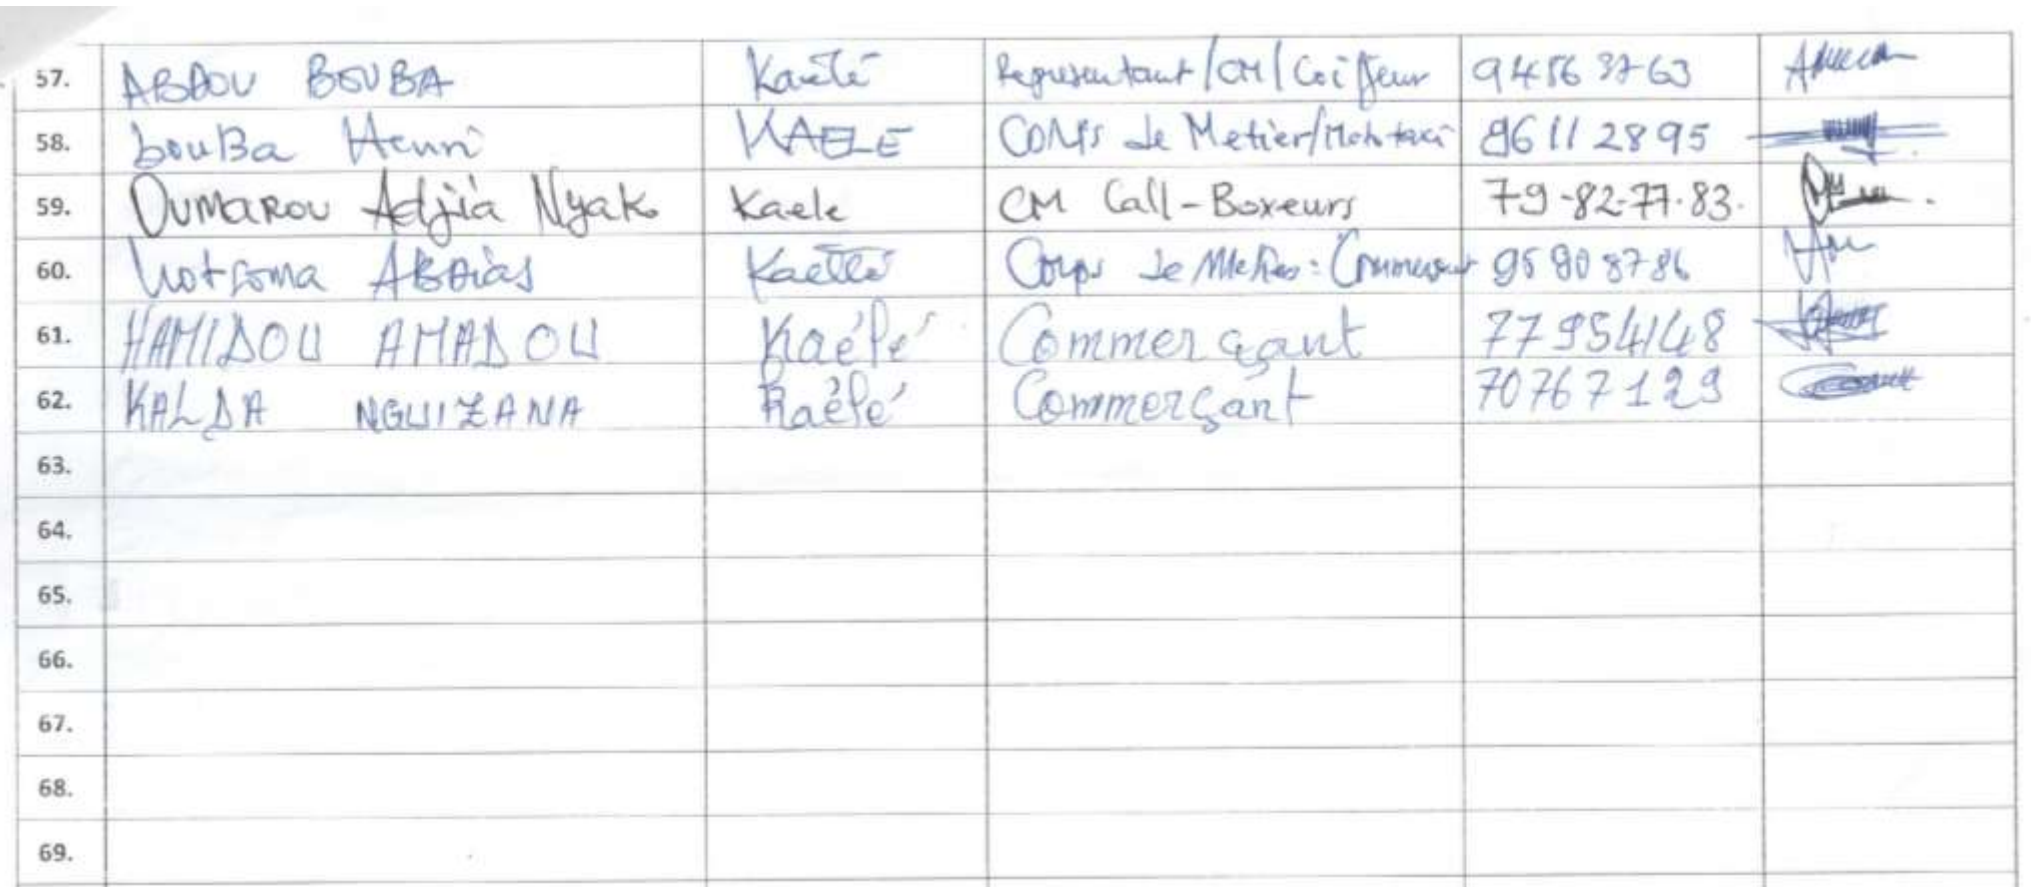 57. ABDOU BOUBA Kaélé Representant/CM/Coiffeur 94563763
58. bouBa Henri KAELE CORPS de Metier/Moto taxi 96112895
59. OUMAROU Adjia Nyako Kaele CM Call-Boxeurs 79-82-77-83.
60. Kaélé Corps de Metiers: Commerçant 95908786
61. HAMIDOU AMADOU Kaélé Commerçant 77954148
62. KALDA NGUIZANA Kaélé Commerçant 70767129
63.
64.
65.
66.
67.
68.
69.